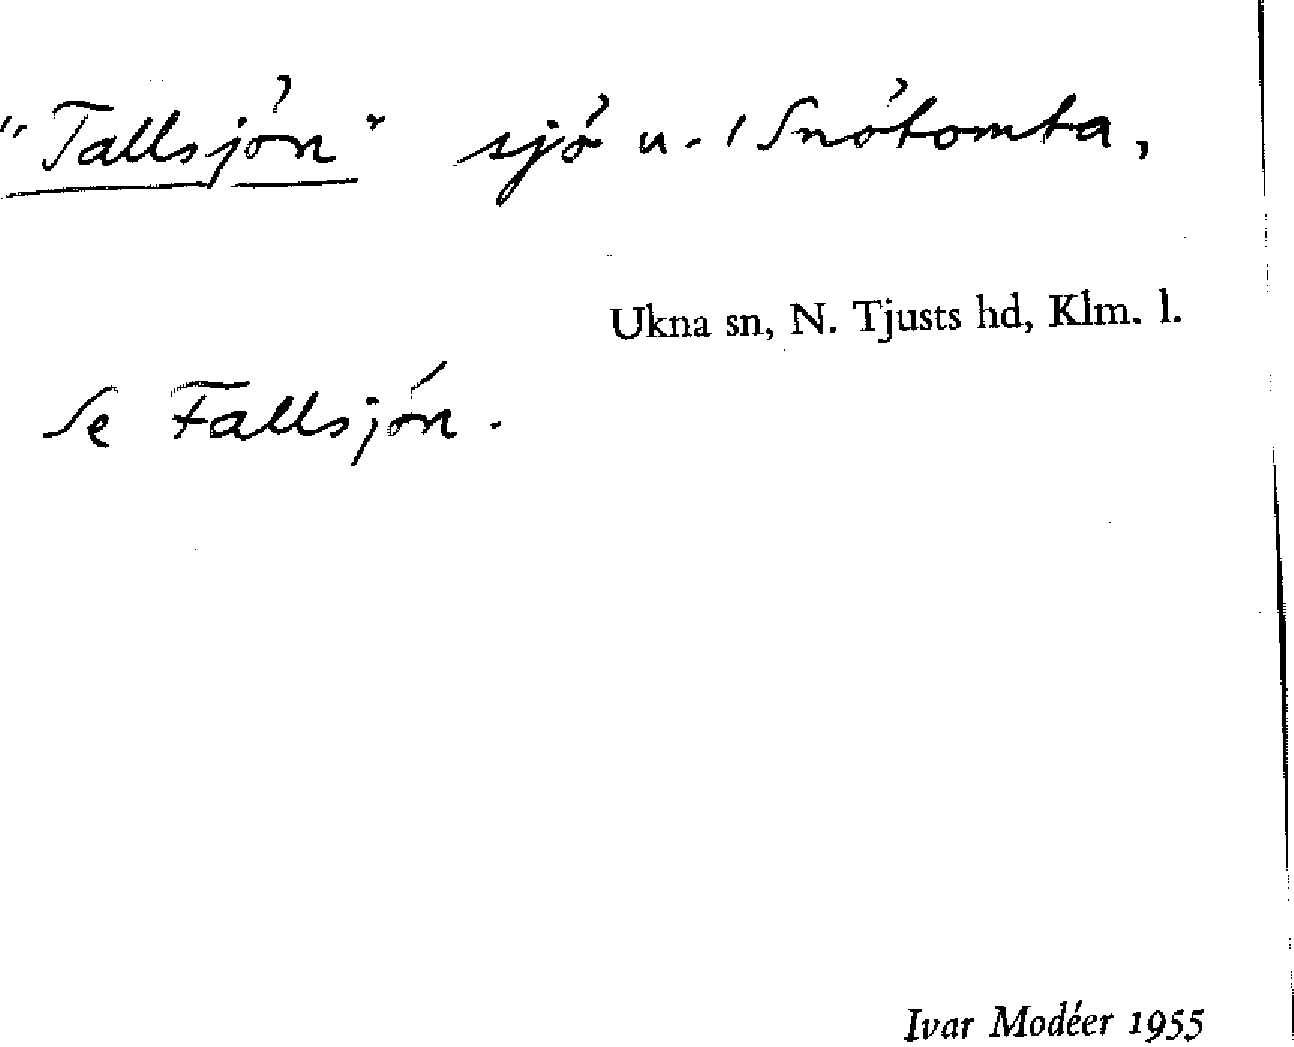 "Tallsjön" sjö u. 1 Snötomta,
Ukna sn, N. Tjusts hd, Klm. l.
Se Fallsjön.
Ivar Modéer 1955